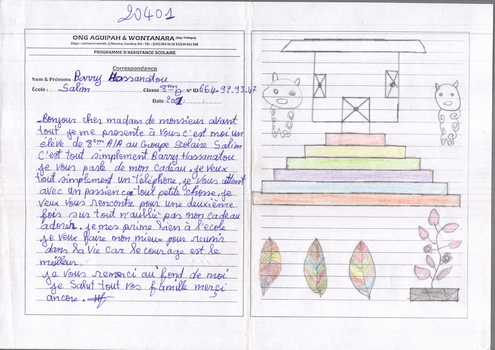 20401
ONG AGUIPAH & WONTANARA
PROGRAMME D'ASSISTANCE SCOLAIRE
Correspondance
Nom & Prénoms Barry Hassanatou
École : Salim Classe 8ème N° ID 664-97.93.47
Date
Bonjour cher madam de monsieur avant
tout je me presente à Vous c'est moi un
élève de 8ème A/A au Groupe Scolaire Salim
C'est tout simplement Barry Hassanatou
je vous parle de mon cadeau, je veux
tout simplement un téléphone, je vous attant
avec un passien tout petite chosse, je
veux vous rencontre pour une deuxième
fois sur tout n'aublié pas mon cadeau
adorer. je mes prime bien à l'école
je veux faire mon mieux pour reunir
dans la vie car le courage est le
meilleur.
je vous remerci au fond de moi
je Salut tout vos famille merçi
ancore.